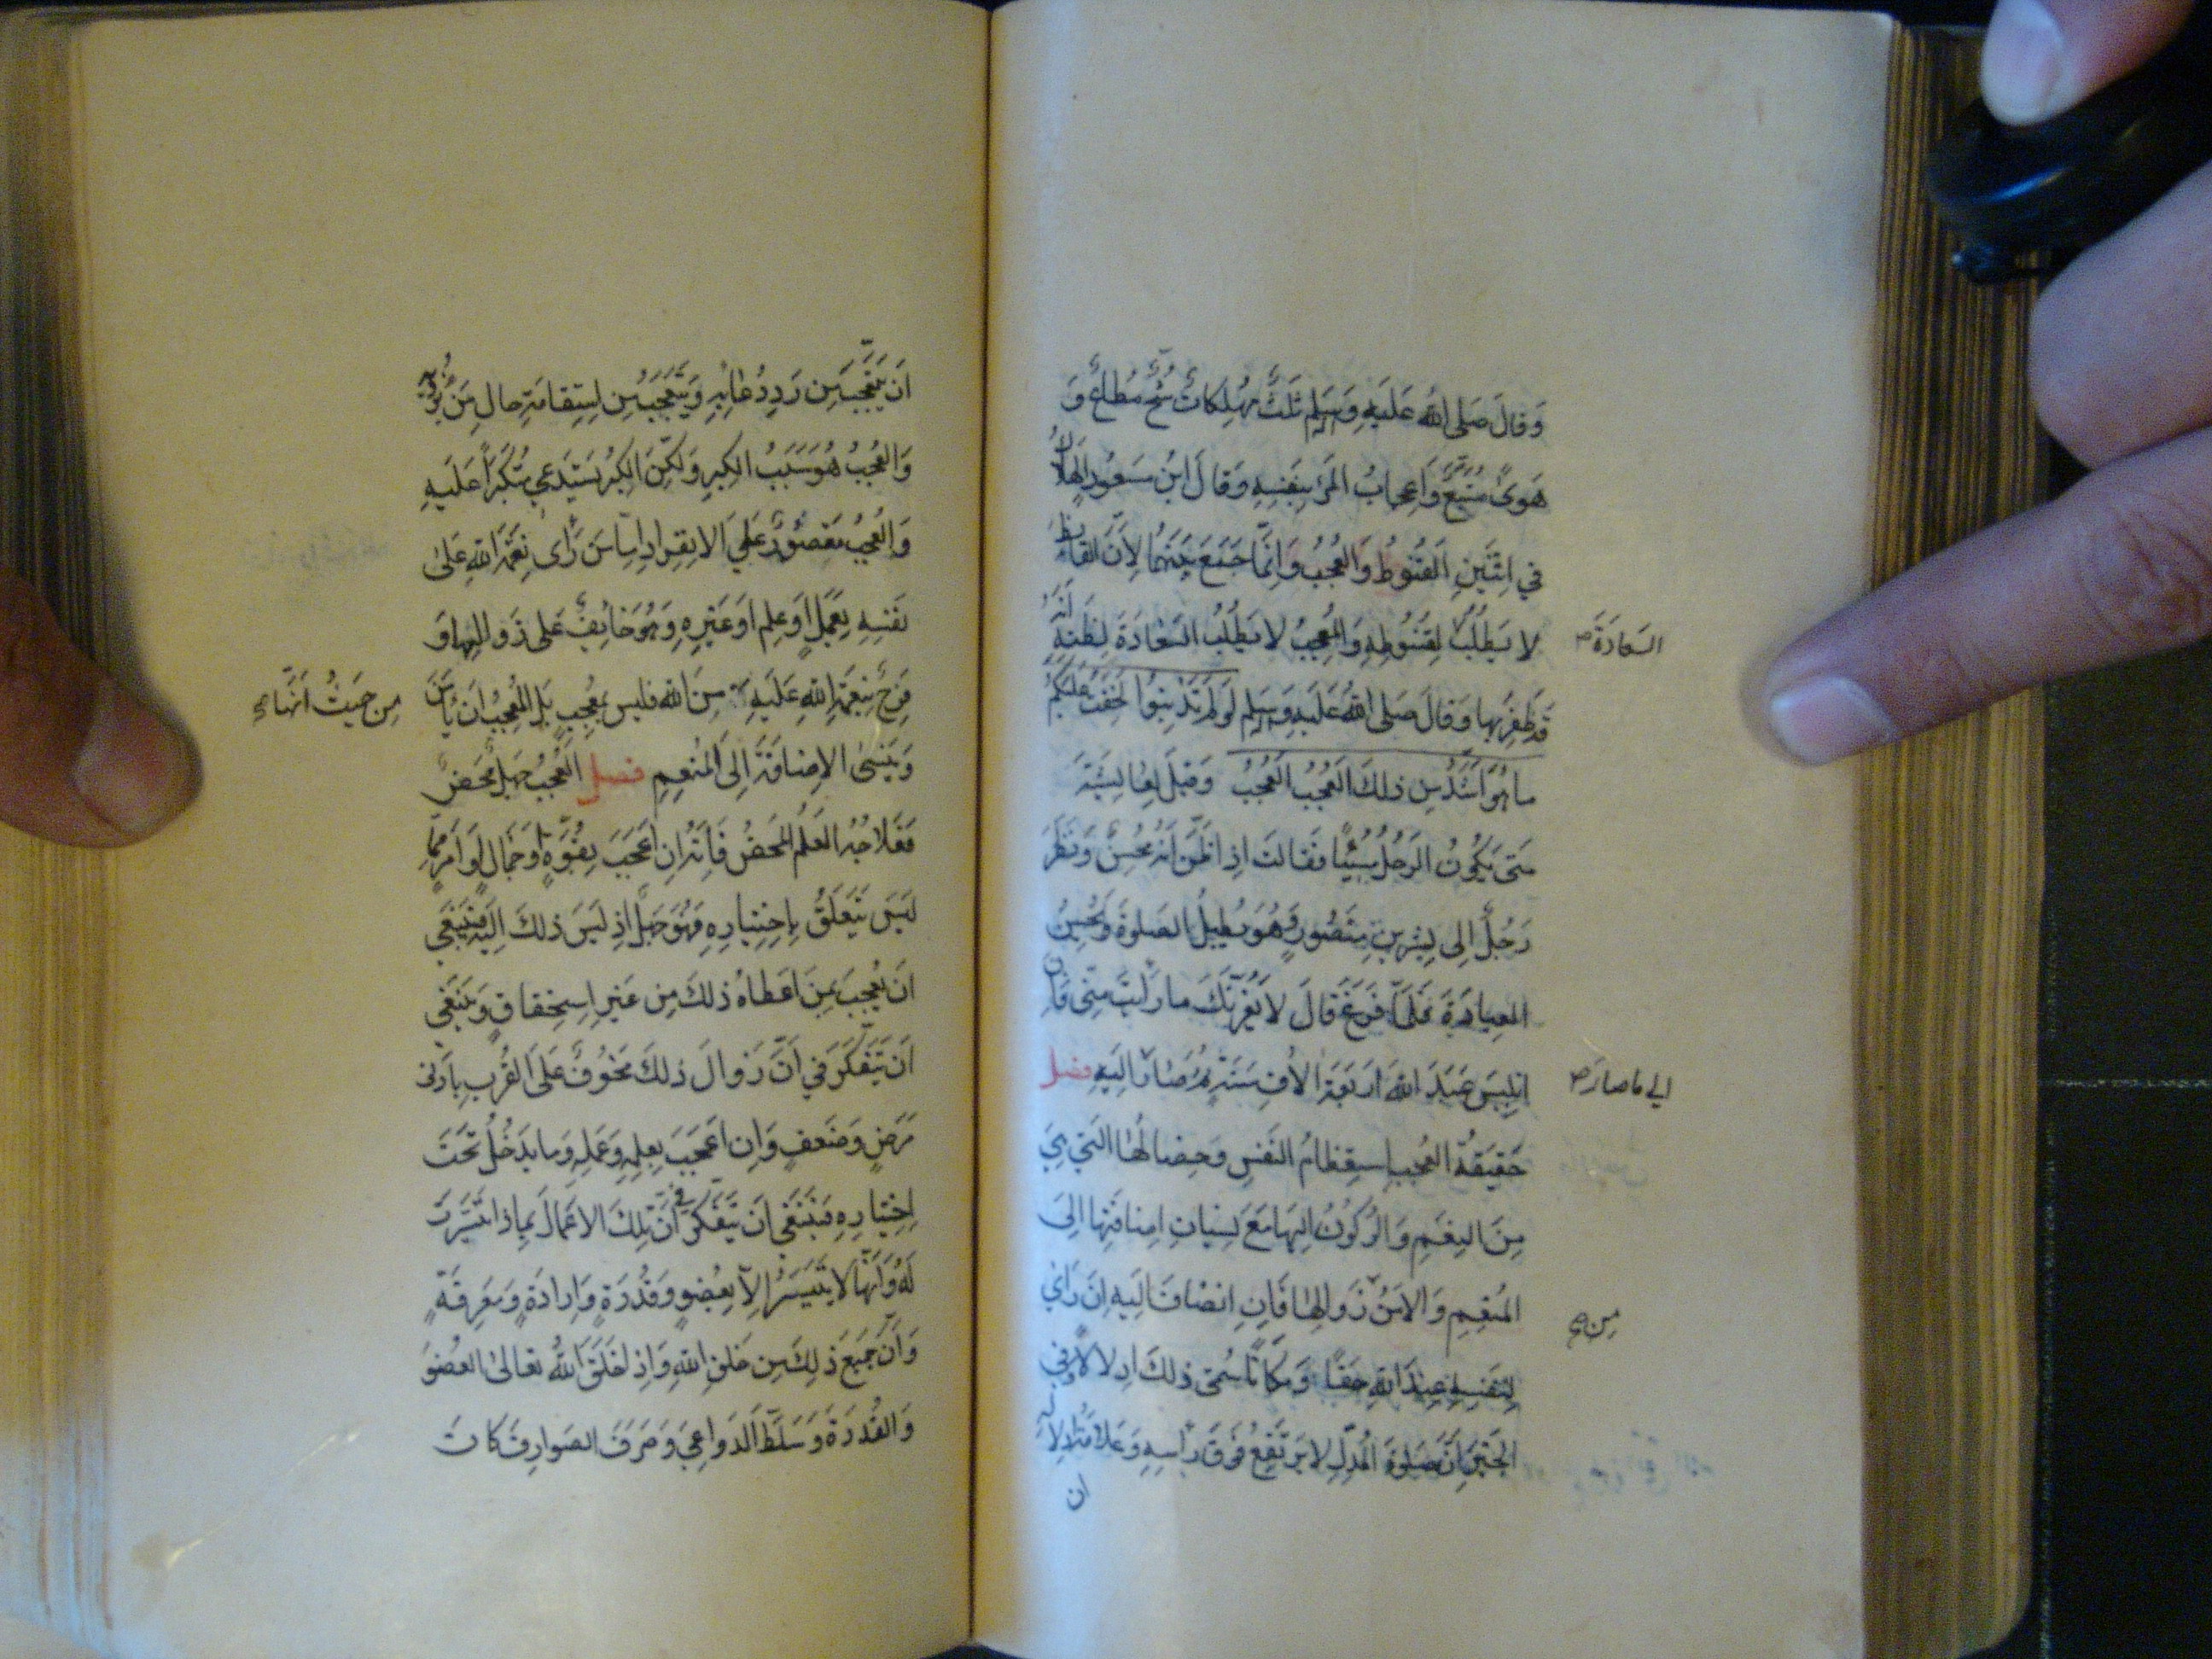 وَقالَ صَلى اللهُ عَلَيهِ وَسَلم ثَلثٌ مُهلِكاتٌ شُحٌّ مُطاعٌ وَ
هَوىً مُتَّبَعٌ وَاعِجابُ المَرَءِ بِنَفسِهِ وَقالَ ابنُ مسَعُود الهَلاكُ
في اِثنَينِ القُنوُطُ وَالعُجبُ وَاِنَّما جَمَعَ بَينَهُما لِاَنَّ القانِطَ
لا يَطلُبُ لِقُنوُطِهِ وَالمُعجِبُ لا يَطلُب السَعادَةَ لِظَنِّهِ اَنَّهُ
السَعادَةَ صح
قَد ظَفِرَ بِها وَقالَ صَلى اللهُ عَليَهِ وَسَلم لَو لَم تُذنِبُوا لَخِفتُ عَليَكُم
ما هُوَ اَشَدُّ مِن ذلكَ العُجبُ العُجبُ وَقيلَ لِعائِشَةَ
مَتى يَكُونُ الرَجُلُ مُسيئًا فقَالَت اِذا ظَنَّ اَنَّهُ مُحسِنٌ وَنَظَرَ
رَجُلٌ اِلى بِشرِ بنِ مَنصُورٍ وَهُوَ يُطيلُ الصَلوةَ وَيُحسِنُ
العِبادَةَ فَلَمّا فَرَغَ قالَ لا يَغُرَّنَّكَ ما رَاَيتَ مِنّى فَاِن
اِبليسَ عَبَدَ اللهَ اَربَعَةَ الافِ سَنَةٍ ثُمَّ صارَ اِلَيهِ فصل
الي ما صار صح
حَقيقَةُ العُجبِ اِستِعظامُ النَفسِ وَخِصالُها التي هِيَ
مِنَ النِعَمِ وَالرُكُونُ اِليَها مَعَ نِسيانِ اِضافَتِها اِلىَ
المُنعِمِ وَالاَمنُ زَوالِها فَاِنِ انضافَ اِلَيهِ اِن رَاي
مِن صح
لِنَفسِهِ عِندَ اللهِ حَقًّا وَمَكانًا سُمّى ذلكَ اِدلالًا وَفي
الخَبَرِ اَنَّ صَلوةَ المُدِلِّ لا يَرتَفِعُ فَوقَ رَاسِهِ وَعَلامَةُ اِدلالِهِ
ان
اَن يَتَعَجَّبَ مِن رَدِّ دُعائِهِ وَيَتَعَجَّبُ مِن اِستِقامَةِ حالِ مَن يُؤذيهِ
وَالعُجبُ هُوَ سَبَبُ الكِبرِ وَلكِنَّ الكِبرَ يَستَدعي مُتَكَبَّرًا عَلَيهِ
وَالعُجبُ مَقصُورٌ عَلي الاِنفِرادِ اَمّا مَن رَاى نِعمَةَ اللهِ عَلىٰ
نَفسِهِ بِعَمَلٍ اَو عِلمٍ اَو غَيرِهِ وَهُوَ خائِفٌ عَلى زَوالِها وَ
فَرِحٌ بِنِعمَةِ اللهِ عَلَيهِ مِنَ الله فليس بمُعجِبٍ بَلِ المُعجِبُ اَن يَاْمَنَ
مِن حَيثُ اَنَّها صح
وَيَنسىٰ الاِضافَةَ اِلىَ المُنعِمِ فصل العُجبُ جَهلٌ مَحضٌ
فَعَلاجُهُ العِلمُ المَحضُ فَاِنَّهُ اِن اُعجِبَ بِقُوَّةٍ اَو جَمالٍ اَو اَمرٍ مِمّا
لَيسَ يَتَعَلَّقُ بِاِختِيارِهِ فَهُوَ جَهلٌ اِذ لَيسَ ذلكَ اِلَيهِ فَيَنبَغي
اَن يُعجَبَ بِمَن اَعطاهُ ذلكَ مِن غَيرِ اِستِحقاقٍ وَيَنبَغي
اَن يَتَفَكَّرَ في اَنَّ زَوالَ ذلكَ مَخُوفٌ عَلَى القُربِ بِاَدنى
مَرَضٍ وَضَعفٍ وَاِن اُعجِبَ بِعِلمِهِ وَعَمَلِهِ وَما يَدخُلُ تَحتَ
اِختِيارِهِ فَينَبَغي اَن يَتَفَكَّرَ في اَنَّ تِلكَ الاَعمالَ بِماذا تَيَسَّرَت
لَهُ وَاَنَّها لا يَتَيَسَّرُ اِلّا بِعُضوٍ وَقُدرَةٍ وَاِرادَةٍ وَمَعرِفَةٍ
وَاَنَّ جَميعَ ذلِكَ مِن خَلقِ اللهِ وَاِذا خَلَقَ اللهُ تعالىٰ العُضوَ
وَالقُدرَةَ وَسَلَّطَ الدَواعِيَ وَصَرَفَ الصَوارِفَ كانَ